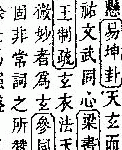 懸易坤卦天玄而
祐文武同心梁書
王制號玄衣法天
微妙者爲玄參同
固非常詞之所贊